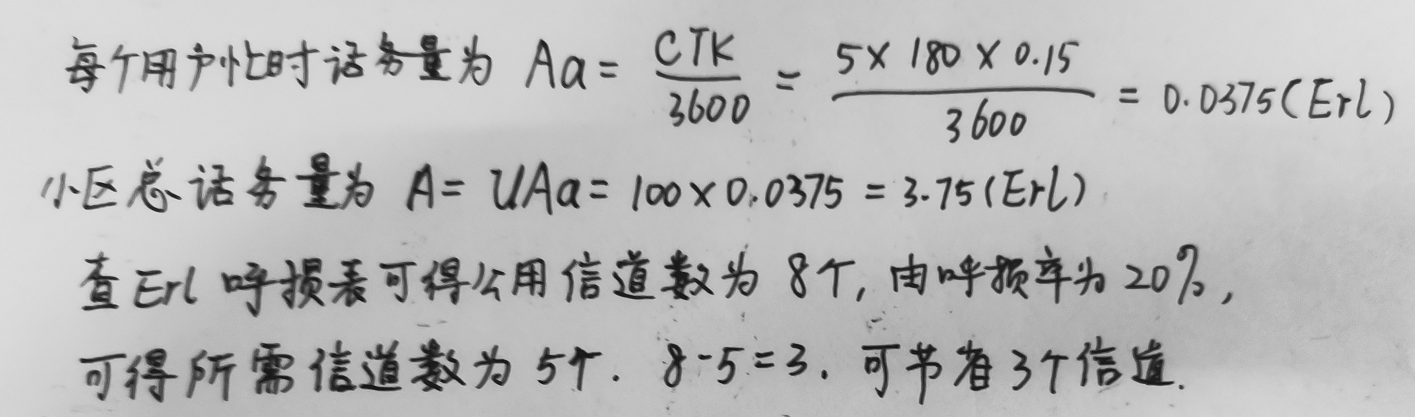 每个用户忙时话务量为 Aa = CTK/3600 = 5×180×0.15/3600 = 0.0375(Erl)
小区总话务量为 A = UAa = 100×0.0375 = 3.75(Erl)
查Erl呼损表可得公用信道数为8个,由呼损率为20%,
可得所需信道数为5个. 8-5=3. 可节省3个信道.